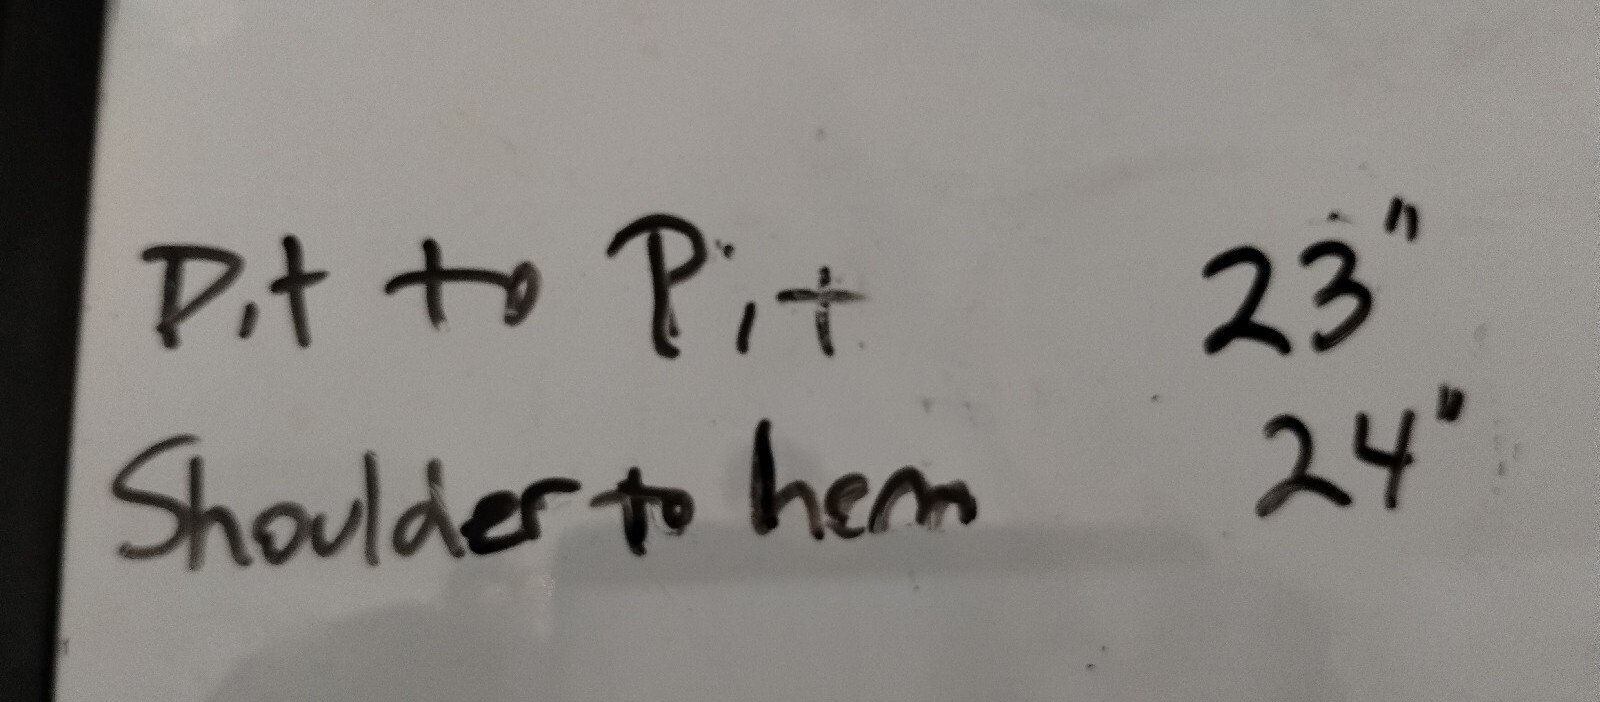 Pit to Pit 23"
Shoulder to hem 24"